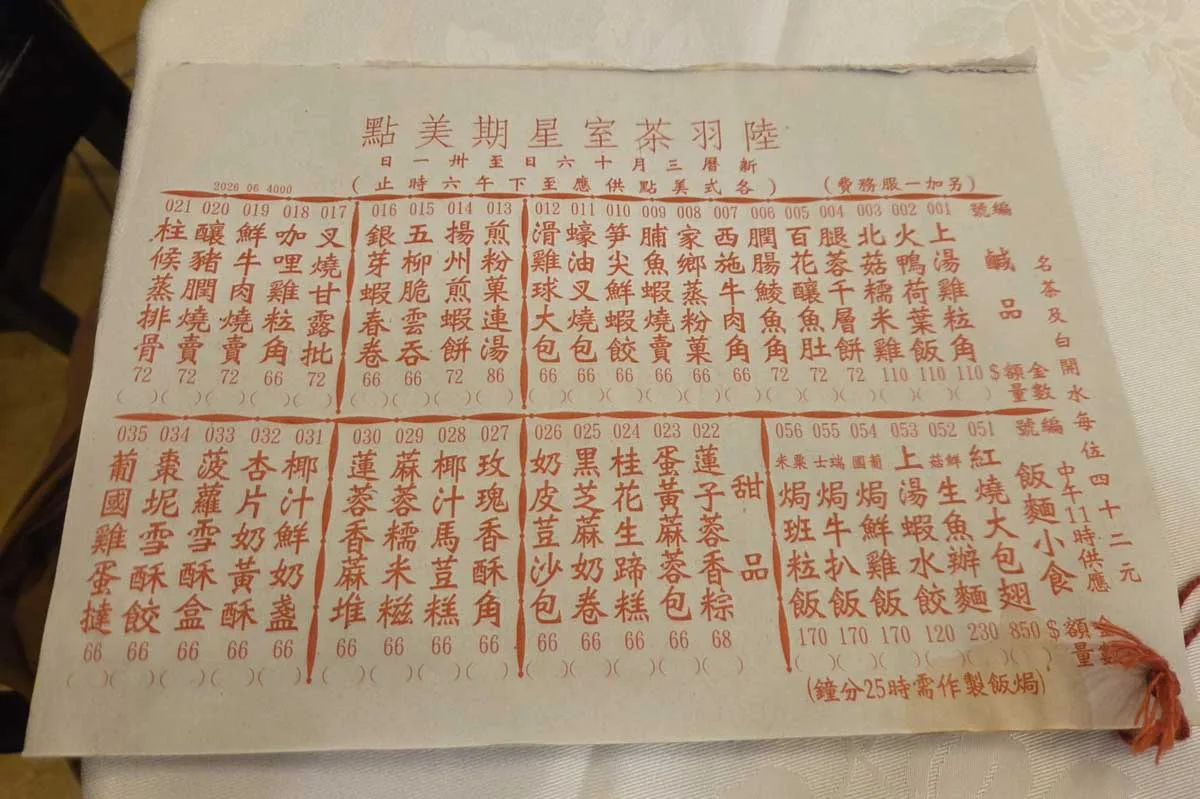 陸羽茶室星期美點
新曆三月十六日至卅一日
(另加一服務費)
(各式美點供應至下午六時止)
2026 06 4000
名茶及白開水每位四十二元
編號 鹹品 金額$ 數量
001 上湯雞粒角 110 ( )
002 火鴨荷葉飯 110 ( )
003 北菇糯米雞 110 ( )
004 腿蓉千層餅 72 ( )
005 百花釀魚肚 72 ( )
006 膶腸鯪魚角 72 ( )
007 西施牛肉角 66 ( )
008 家鄉蒸粉菓 66 ( )
009 脯魚蝦燒賣 66 ( )
010 笋尖鮮蝦餃 66 ( )
011 蠔油叉燒包 66 ( )
012 滑雞球大包 66 ( )
013 煎粉菓連湯 86 ( )
014 揚州煎蝦餅 72 ( )
015 五柳脆雲吞 66 ( )
016 銀芽蝦春卷 66 ( )
017 叉燒甘露批 72 ( )
018 咖哩雞粒角 66 ( )
019 鮮牛肉燒賣 72 ( )
020 釀豬膶燒賣 72 ( )
021 柱候蒸排骨 72 ( )
編號 飯麵小食 中午11時供應 金額$ 數量
051 紅燒大包翅 850 ( )
052 鮮菇生魚辦麵 230 ( )
053 上湯蝦水餃 120 ( )
054 葡國焗鮮雞飯 170 ( )
055 瑞士焗牛扒飯 170 ( )
056 粟米焗班粒飯 170 ( )
(焗飯製作需時25分鐘)
甜品
022 蓮子蓉香粽 68 ( )
023 蛋黃蔴蓉包 66 ( )
024 桂花生蹄糕 66 ( )
025 黑芝蔴奶卷 66 ( )
026 奶皮荳沙包 66 ( )
027 玫瑰香酥角 66 ( )
028 椰汁馬荳糕 66 ( )
029 蔴蓉糯米糍 66 ( )
030 蓮蓉香蔴堆 66 ( )
031 椰汁鮮奶盞 66 ( )
032 杏片奶黃酥 66 ( )
033 菠蘿雪酥盒 66 ( )
034 棗坭雪酥餃 66 ( )
035 葡國雞蛋撻 66 ( )